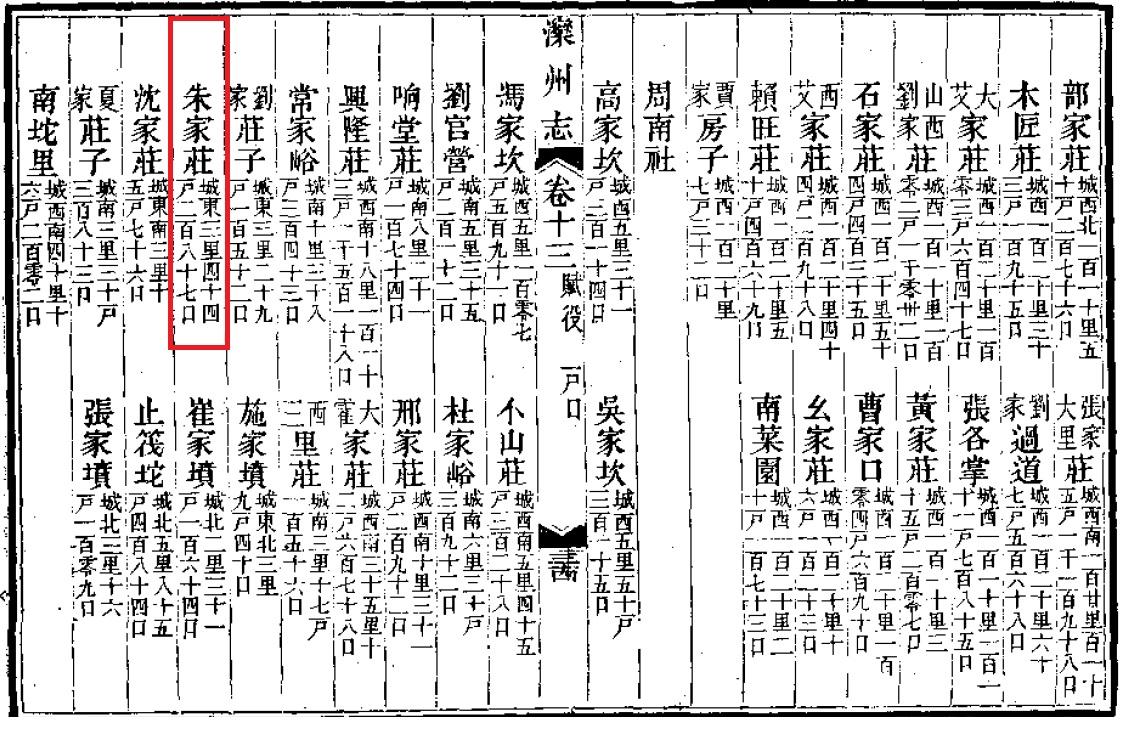 部家莊城西北一百一十里五十戸二百七十六口
張家大里莊城西南一百廿里百一十五戸一千一百九十八口
木匠莊城西一百二十里三十三戸一百九十五口
劉家過道城西一百二十里六十七戸五百六十八口
大艾家莊城西一百二十里一百零三戸六百四十七口
張各掌城西一百一十里一百一十一戸七百八十五口
山西劉家莊城西一百一十里一百零二戸一千零卅二口
黃家莊城西一百一十里三十五戸二百零七口
石家莊城西一百二十里五十四戸四百三十五口
曹家口城西一百二十里一百零四戸六百九十口
西艾家莊城西一百二十里四十四戸二百九十八口
幺家莊城西一百二十里十六戸一百二十三口
賴旺莊城西一百二十里五十戸四百六十九口
南菜園城西一百二十里二十戸一百七十三口
賈家房子城西一百二十里七戸三十二口
周南社
高家坎城西五里三十一戸二百一十四口
吳家坎城西五里五十戸三百一十五口
灤州志
卷十三
賦役
戸口
馮家坎城西五里一百零七戸五百九十一口
小山莊城西南五里四十五戸二百二十八口
劉官營城南五里三十五戸二百一十二口
杜家峪城南六里三十戸三百九十二口
响堂莊城南八里二十一戸一百七十四口
邢家莊城西南十里三十一戸二百九十二口
興隆莊城西南十八里一百一十三戸一千五百一十八口
大霍家莊城西南三十五里十二戸六百七十八口
常家峪城南十里三十八戸三百四十三口
西三里莊城南三里十七戸一百五十六口
劉家莊子城東三里二十九戸一百五十二口
施家墳城東北三里九戸四十口
朱家莊城東三里四十四戸二百八十七口
崔家墳城北二里三十一戸一百六十四口
沈家莊城東南三里十五戸七十六口
止筏坨城北五里八十五戸四百八十四口
夏家莊子城南三里三十戸三百八十三口
張家墳城北三里十六戸一百零九口
南坨里城西南四十里十六戸二百零二口